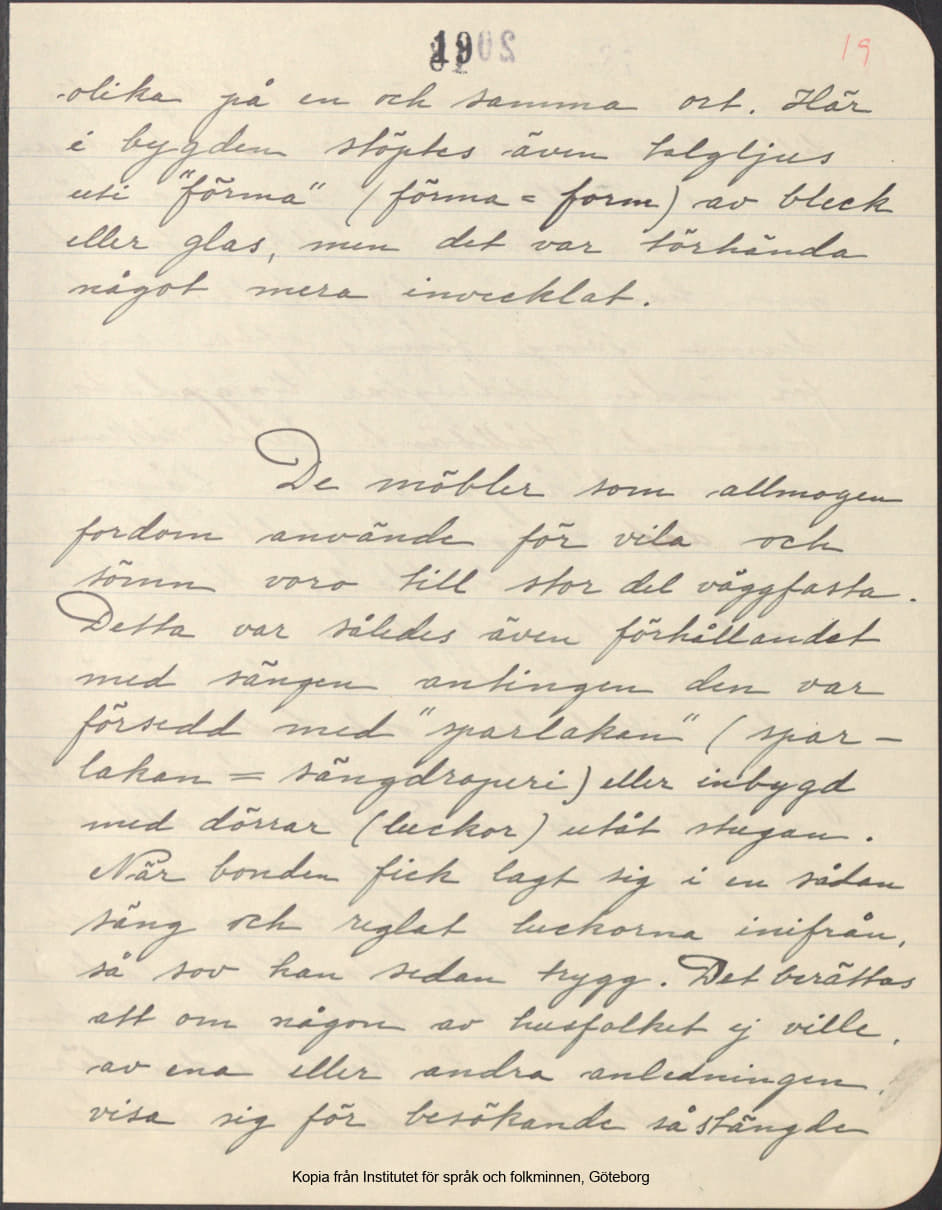 19
19
olika på en och samma ort. Här
i bygden stöptes även talgljus
uti "förma" (förma = form) av bleck
eller glas, men det var törhända
något mera invecklat.
De möbler som allmogen
fordom använde för vila och
sömn voro till stor del väggfasta.
Detta var således även förhållandet
med sängen antingen den var
försedd med "sparlakan" (spar-
lakan = sängdraperi) eller inbygd
med dörrar (luckor) utåt stugan.
När bonden fick lagt sig i en sådan
säng och reglat luckorna inifrån,
så sov han sedan trygg. Det berättas
att om någon av husfolket ej ville,
av ena eller andra anledningen,
visa sig för besökande så stängde
Kopia från Institutet för språk och folkminnen, Göteborg